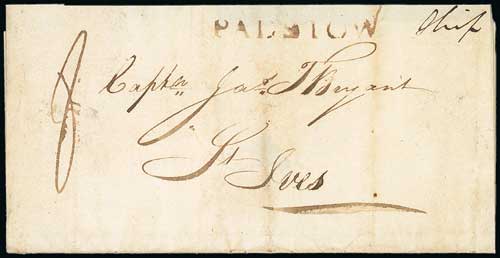 PADSTOW
Ship
8
Captn Jas. T Bryant
St Ives